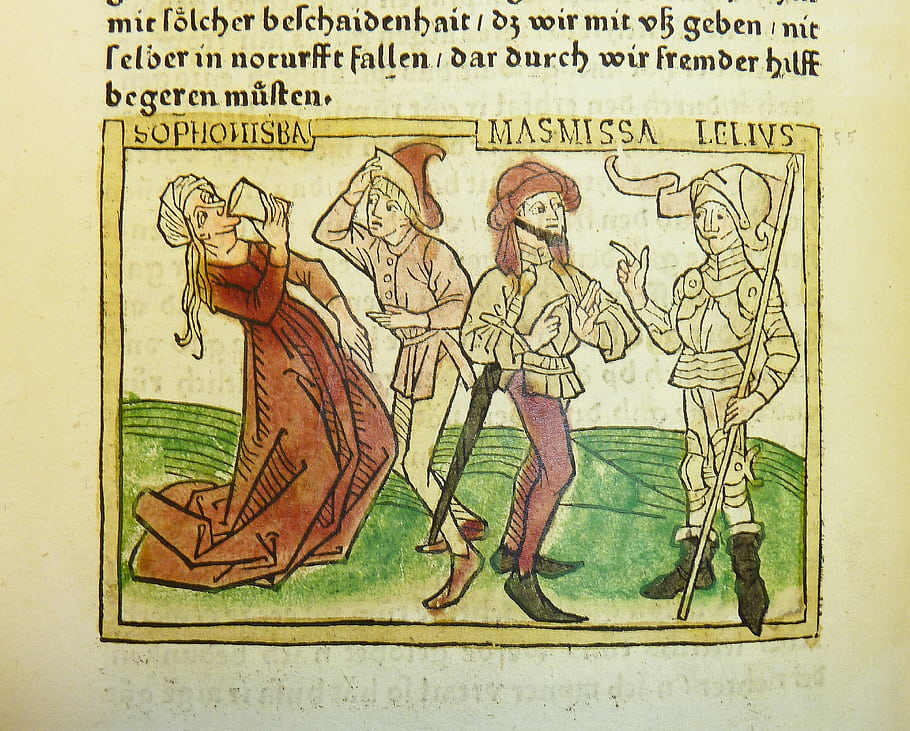 mit sölcher beschaidenhait / dz wir mit vß geben / nit
selber in noturfft fallen / dar durch wir fremder hilff
begeren müsten.
SOPHONISBA MASMISSA LELIVS
55